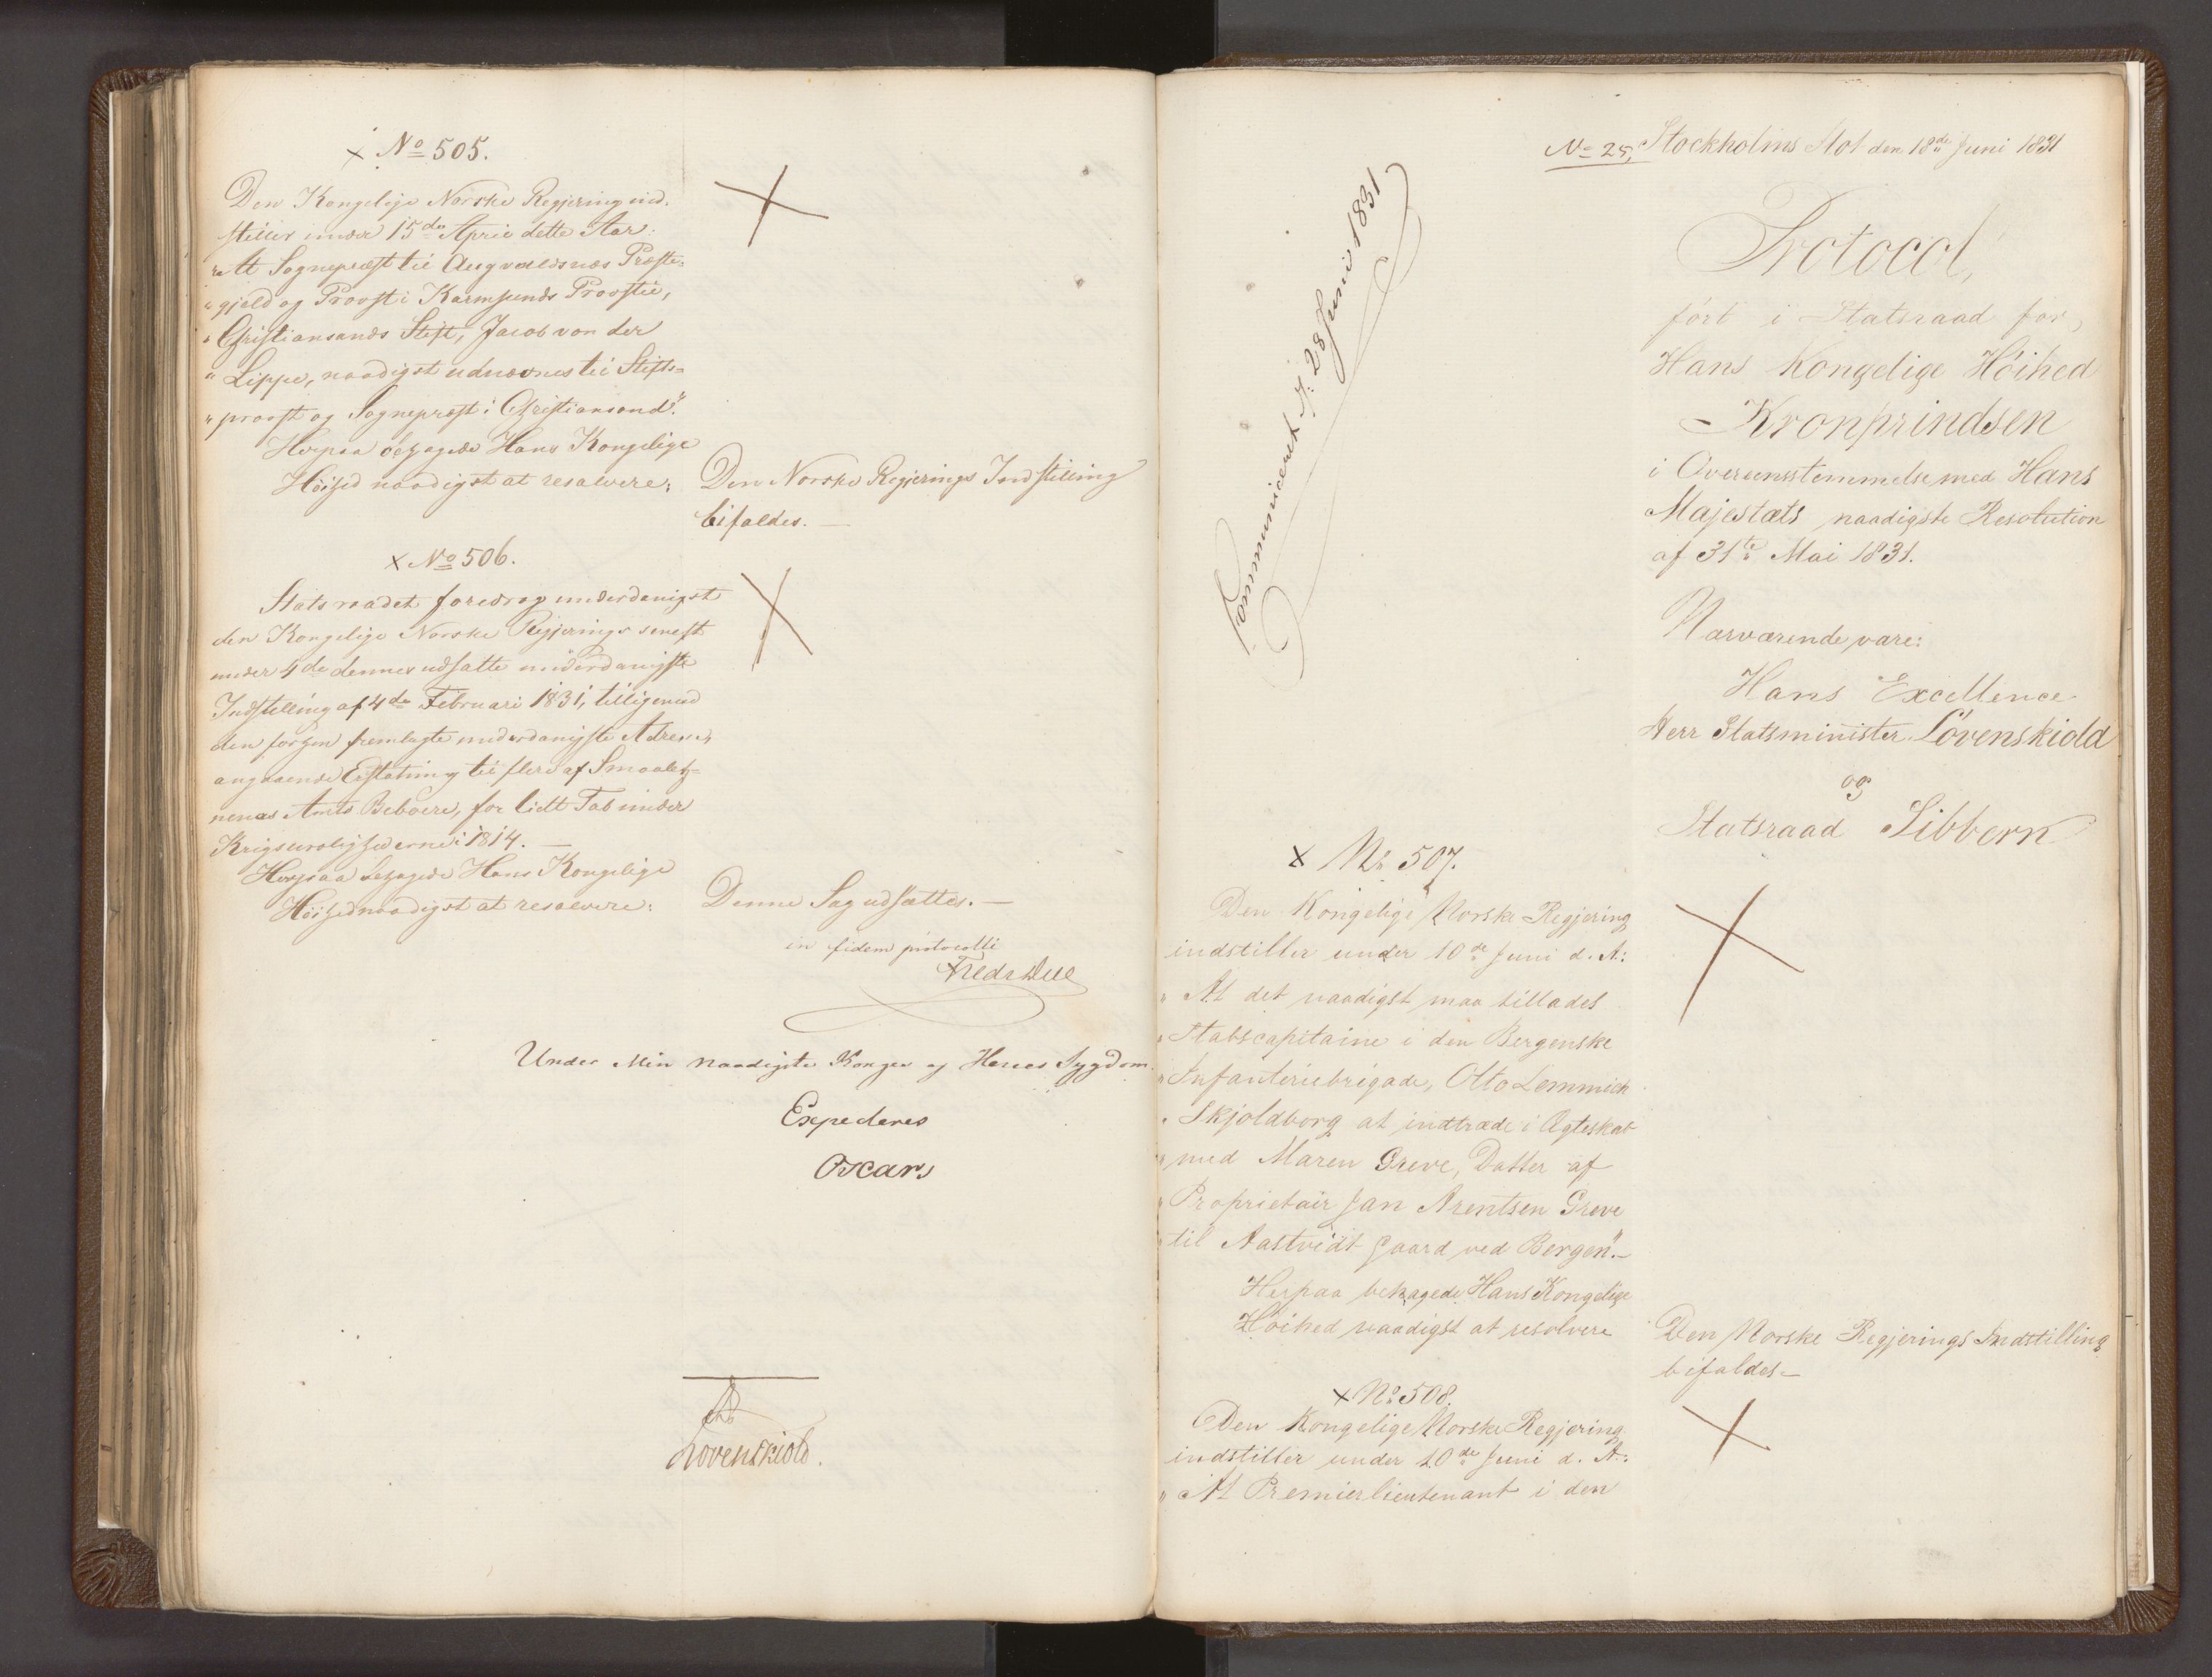 x No 505.
Den Kongelige Norske Regjering ind-
stiller under 15de April dette Aar:
"At Sognepræst til Augvaldsnæs Præste-
"gjeld og Provst i Karmsunds Provstie,
"Christiansands Stift, Jacob von der
"Lippe, naadigst udnævnes til Stifts-
"provst og Sognepræst i Christiansand".
Herpaa behagede Hans Kongelige
Höihed naadigst at resolvere:
Den Norske Regjerings Indstilling
bifaldes. —
x No 506.
Statsraadet foredrog underdanigst
den Kongelige Norske Regjerings senest
under 4de dennes udsatte underdanigste
Indstilling af 4de Februari 1831, tilligemed
den forhen fremlagte underdanigste Adresse,
angaaende Erstatning til flere af Smaaleh-
nenes Amts Beboere, for lidt Tab under
Krigsurolighederne i 1814. —
Herpaa behagede Hans Kongelige
Höihed naadigst at resolvere:
Denne Sag udsættes. —
in fidem protocolli
Fredr Due
Under Min Naadigste Konges og Herres Sygdom.
Expederes
Oscar
Lövenskiold.
No 25,
Stockholms Slot den 18de Juni 1831
Protocol,
fört i Statsraad for
Hans Kongelige Höihed
Kronprindsen
i Overeensstemmelse med Hans
Majestæts naadigste Resolution
af 31te Mai 1831.
Nærværende vare:
Hans Excellence
Herr Statsminister Lövenskiold
og
Statsraad Sibbern
Kommuniceret d: 28 Juni 1831
x No 507.
Den Kongelige Norske Regjering
indstiller under 10de Juni d. A:
"At det naadigst maa tillades
"Stabscapitaine i den Bergenske
"Infanteriebrigade, Otto Lemmich
"Skjoldborg at indtræde i Ægteskab
"med Maren Greve, Datter af
"Proprietair Jan Arentsen Greve
"til Aastvedt Gaard ved Bergen". —
Herpaa behagede Hans Kongelige
Höihed naadigst at resolvere
Den Norske Regjerings Indstilling
bifaldes —
x No 508.
Den Kongelige Norske Regjering
indstiller under 10de Juni d. A:
"At Premierlieutenant i den